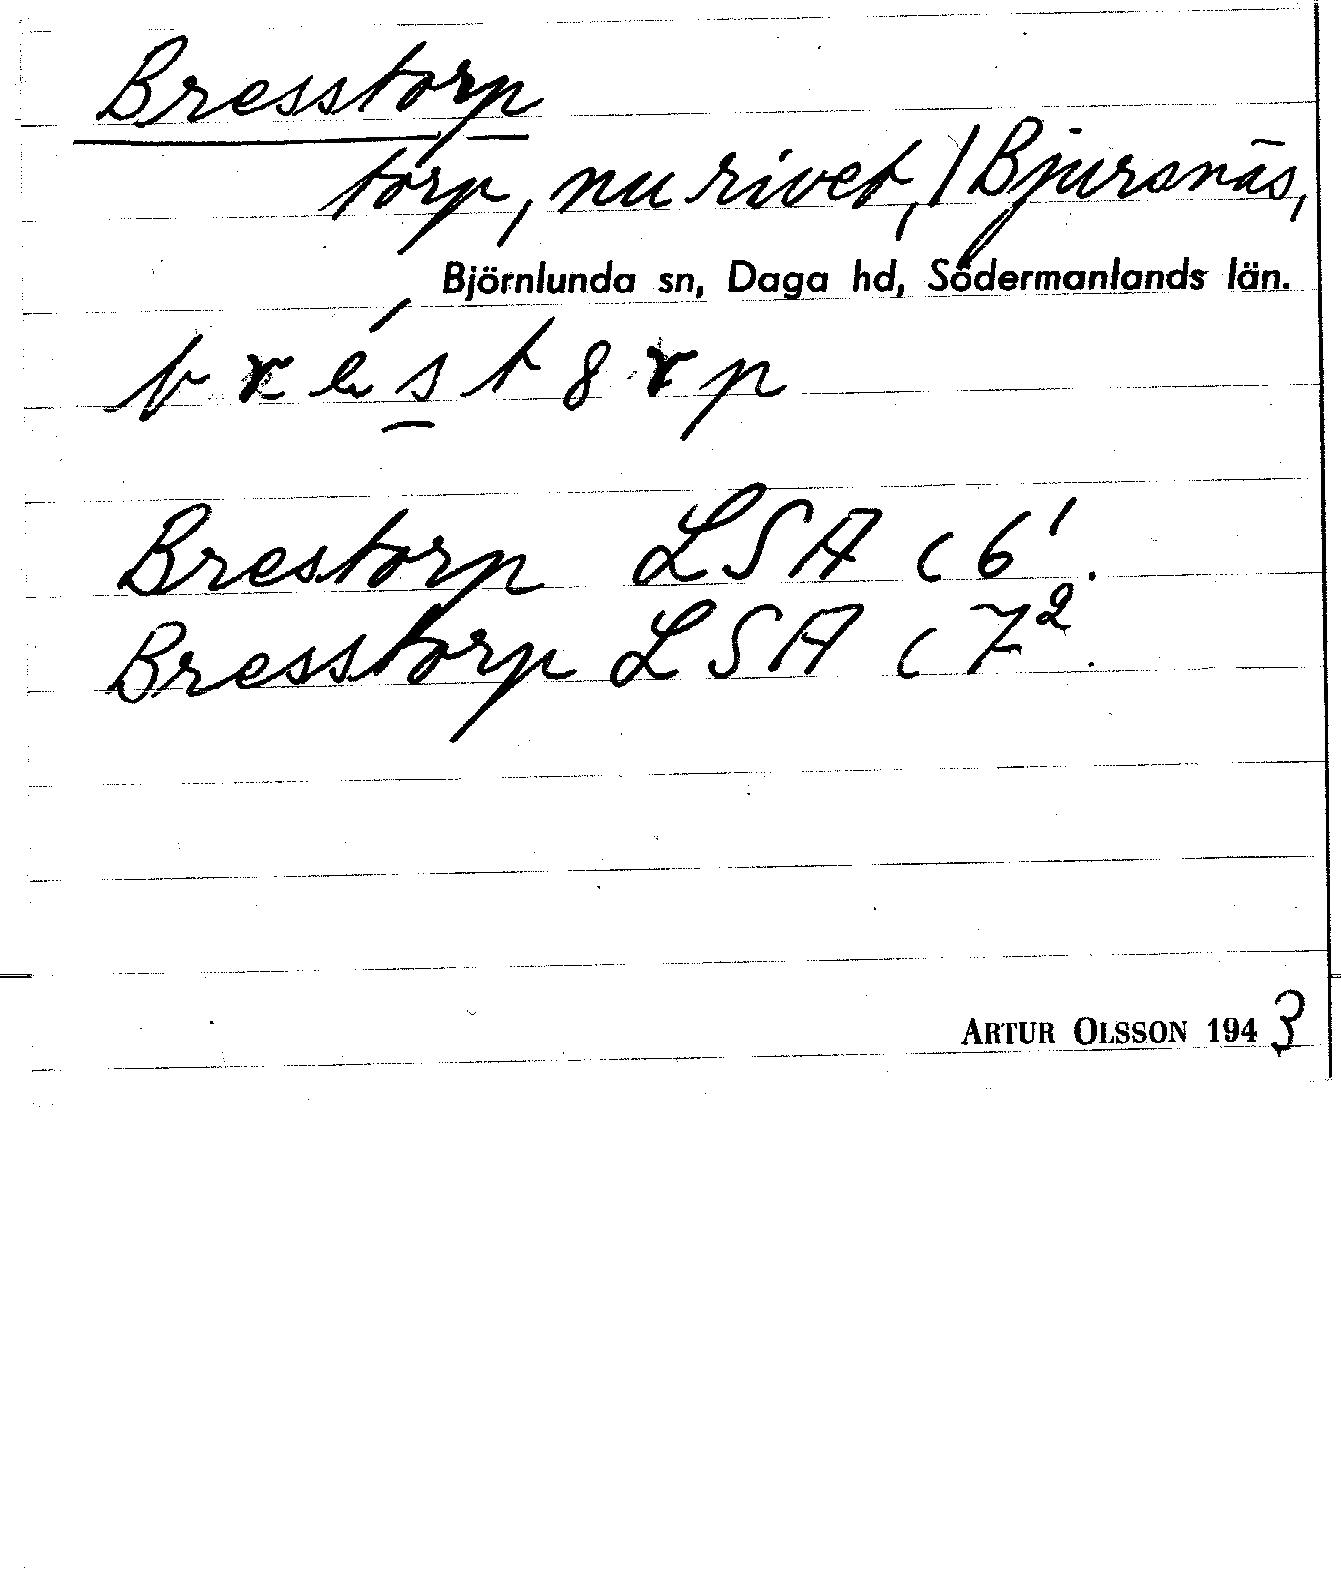 Bresstorp
torp, nu rivet, / Bjursnäs,
Björnlunda sn, Daga hd, Södermanlands län.
Brestorp LSA c 6¹.
Bresstorp LSA c 7².
ARTUR OLSSON 1943